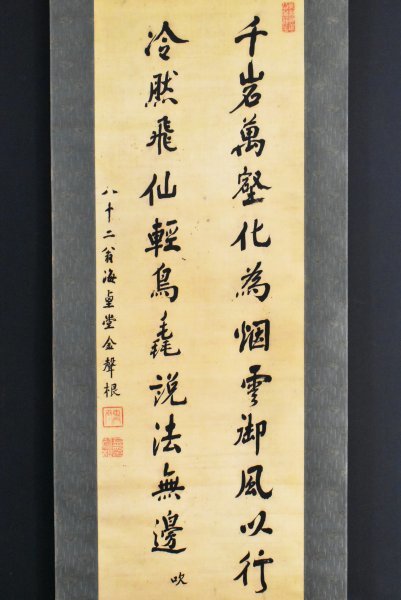 千岩萬壑化為烟雲御風以行
冷然飛仙輕鳥毳說法無邊
吹
八十二翁海堂金聲根